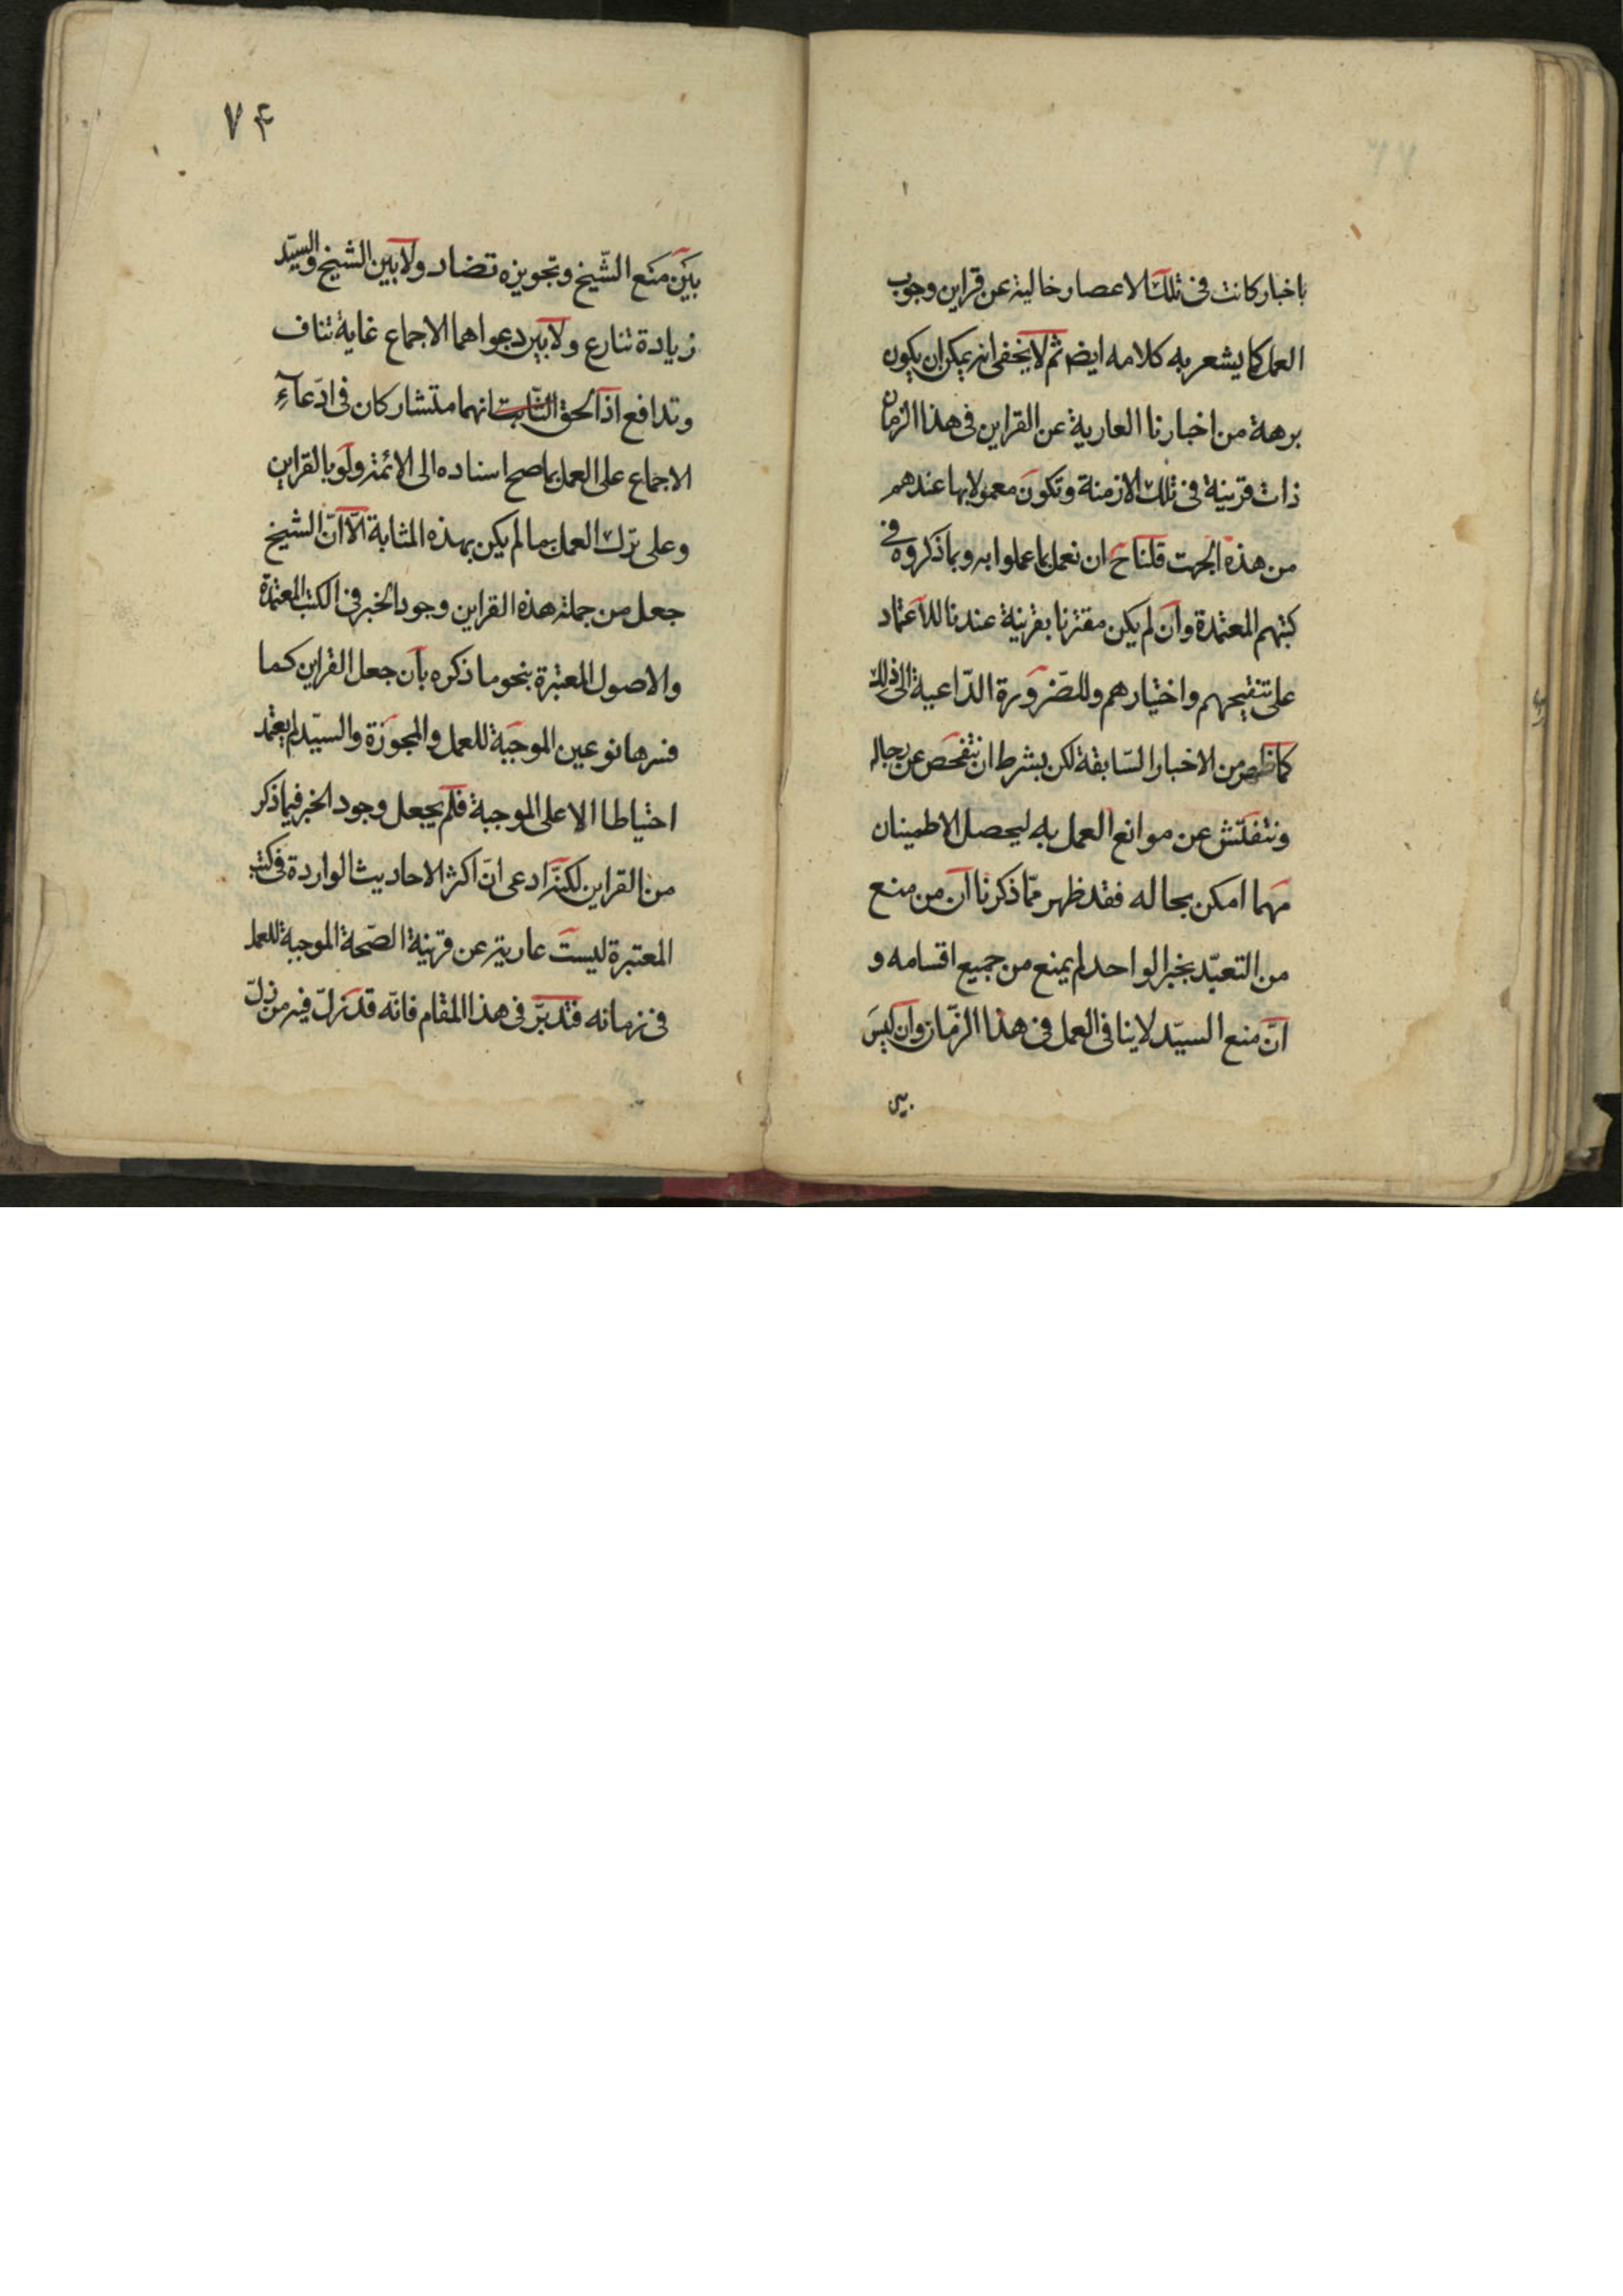 باخبار كانت فى تلك الاعصار خالية عن قراين وجوب
العمل كما يشعر به كلامه ايضا ثم لا يخفى انه يمكن ان يكون
برهة من اخبارنا العارية عن القراين فى هذا الزمان
ذات قرينة فى تلك الازمنة وتكون معمولا بها عندهم
من هذه الجهة قلنا ح ان نعمل بما عملوا به وبما ذكروه فى
كتبهم المعتمدة وان لم يكن مقترنا بقرينة عندنا للاعتماد
على تنقيحهم واختيارهم وللضرورة الداعية الى ذلك
كما ظهر من الاخبار السّابقة لكن بشرط ان نتفحص عن رجاله
ونتفتّش عن موانع العمل به ليحصل الاطمينان
مهما امكن بحاله فقد ظهر ممّا ذكرنا ان من منع
من التعبّد بخبر الواحد لم يمنع من جميع اقسامه و
انّ منع السيّد لا ينافى العمل فى هذا الزّمان وان ليس
بين
٧۴
بين منع الشّيخ وتجويزه تضاد ولا بين الشيخ والسيّد
زيادة تنازع ولا بين دعواهما الاجماع غاية تناف
وتدافع اذ الحق الثابت انهما متشاركان فى ادّعاء
الاجماع على العمل بما صح اسناده الى الائمة ولو بالقراين
وعلى ترك العمل بما لم يكن بهذه المثابة الّا انّ الشيخ
جعل من جملة هذه القراين وجود الخبر فى الكتب المعتمدة
والاصول المعتبرة بنحو ما ذكره بان جعل القراين كما
فسرها نوعين الموجبة للعمل والمجوزة والسيّد لم يعتمد
احتياطا الا على الموجبة فلم يجعل وجود الخبر فيما ذكر
من القراين لكنه ادعى انّ اكثر الاحاديث الواردة فى كتب
المعتبرة ليست عارية عن قرينة الصّحة الموجبة للعمل
فى زمانه فتدبّر فى هذا المقام فانّه قد زلّ فيه من زلّ